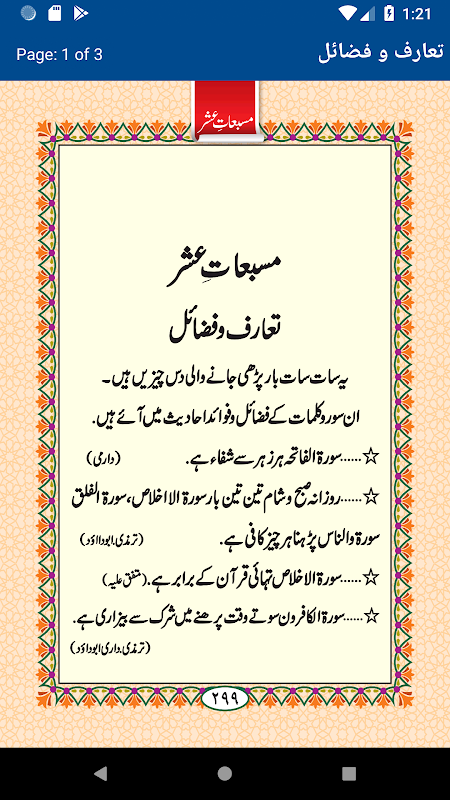 1:21
Page: 1 of 3
تعارف و فضائل
مسبعاتِ عشر
مسبعاتِ عشر
تعارف و فضائل
یہ سات سات بار پڑھی جانے والی دس چیزیں ہیں۔
ان سور و کلمات کے فضائل و فوائد احادیث میں آئے ہیں.
☆......سورۃ الفاتحہ ہر زہر سے شفاء ہے. (دارمی)
☆......روزانہ صبح و شام تین تین بار سورۃ الا اخلاص، سورۃ الفلق
سورۃ والناس پڑہنا ہر چیز کافی ہے. (ترمذی.ابوداؤد)
☆......سورۃ الاخلاص تہائی قرآن کے برابر ہے. (متفق علیہ)
☆......سورۃ الکافرون سوتے وقت پرھنے میں شرک سے بیزاری ہے.
(ترمذی.داری ابوداؤد)
۲۹۹